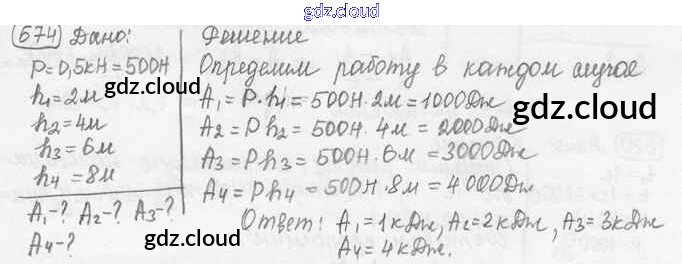 gdz.cloud
674) Дано:
P=0,5кН=500Н
h₁=2м
h₂=4м
h₃=6м
h₄=8м
A₁-? A₂-? A₃-?
A₄-?
Решение
Определим работу в каждом случае
A₁=P·h₁=500Н·2м=1000Дж
A₂=Ph₂=500Н·4м=2000Дж
A₃=Ph₃=500Н·6м=3000Дж
A₄=Ph₄=500Н·8м=4000Дж
Ответ: A₁=1кДж, A₂=2кДж, A₃=3кДж
A₄=4кДж.
gdz.cloud
gdz.cloud
gdz.cloud
gdz.cloud
gdz.cloud